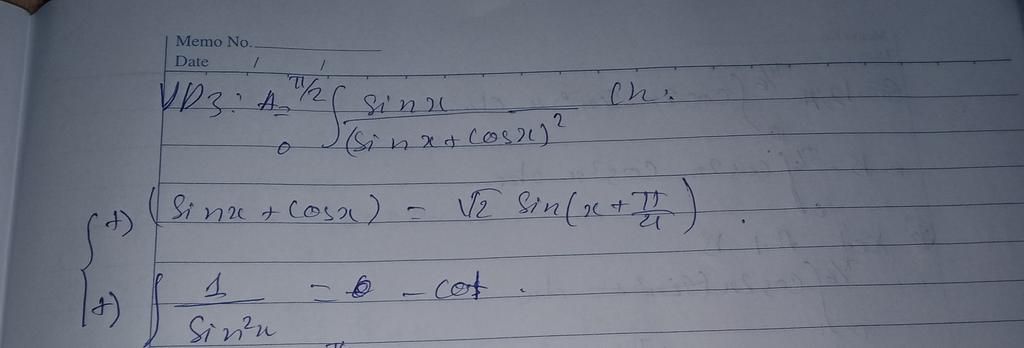 Memo No.
Date / /
VD3: A = π/2 ∫ sinx / (sinx + cosx)² dx.
0
+) (sinx + cosx) = √2 sin(x + π/4).
+) ∫ 1 / sin²x = - cot.